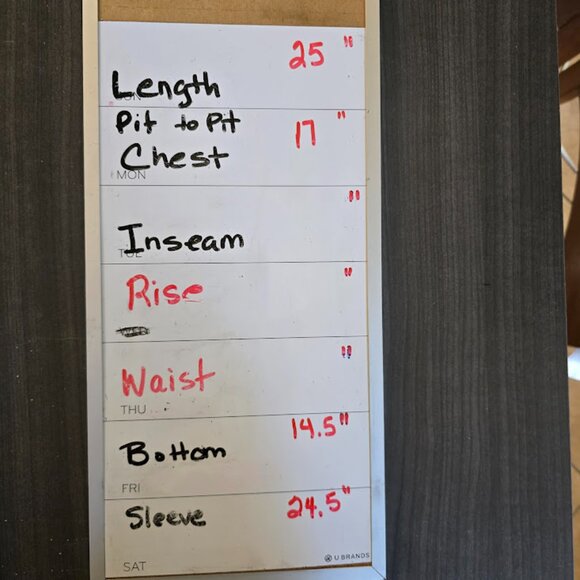 25 "
Length
Pit to Pit
17 "
Chest
MON
"
Inseam
"
Rise
"
Waist
THU
14.5"
Bottom
FRI
24.5"
Sleeve
U BRANDS
SAT